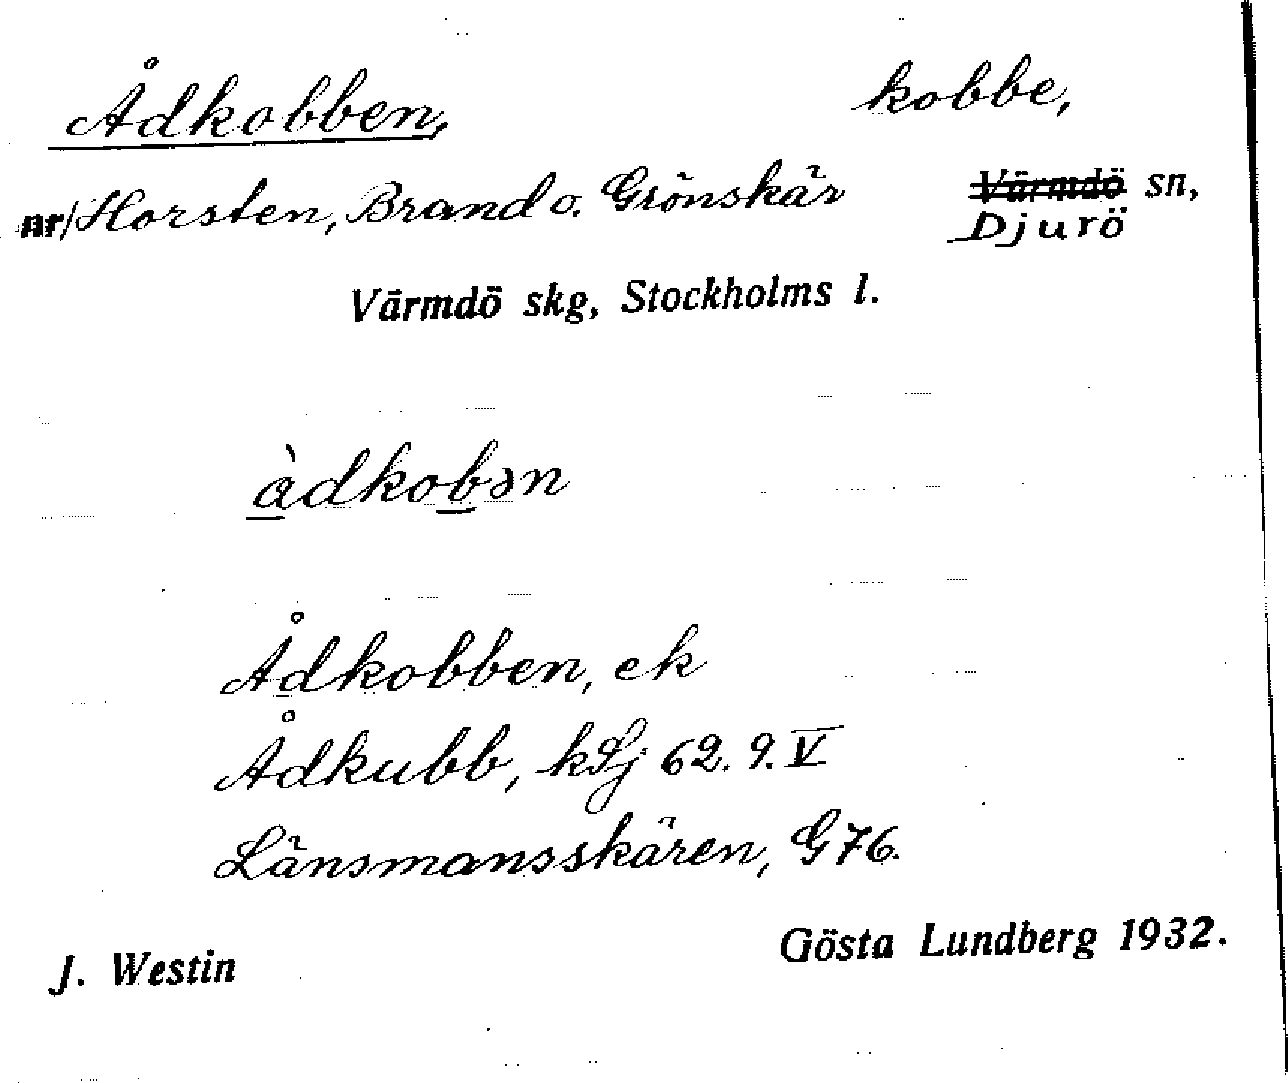 Ådkobben, kobbe,
nr/Horsten, Brand o. Grönskär Värmdö sn,
Djurö
Värmdö skg, Stockholms l.
àdkobən
Ådkobben, ek
Ådkubb, kSj 62. 9. V
Länsmansskären, G76.
J. Westin Gösta Lundberg 1932.